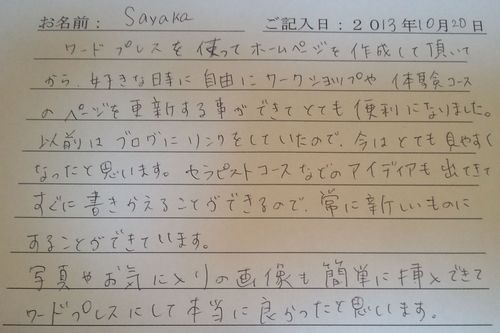 お名前： Sayaka ご記入日：２０13年10月20日
ワードプレスを使ってホームページを作成して頂いて
から、好きな時に自由にワークショップや体験コース
のページを更新する事ができてとても便利になりました。
以前はブログにリンクをしていたので、今はとても見やすく
なったと思います。セラピストコースなどのアイディアも出てきて
すぐに書きかえることができるので、常に新しいものに
することができています。
写真やお気に入りの画像も簡単に挿入できて
ワードプレスにして本当に良かったと思います。